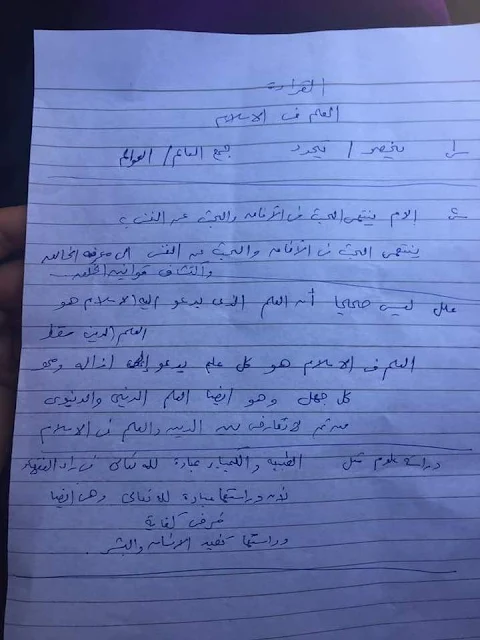 القراءة
العلم في الاسلام
س١ ينحصر / يتحدد جمع العالم / العوالم
س٢ إلام ينتهي البحث في الآفاق والبحث عن النفس ؟
ينتهي البحث في الآفاق والبحث عن النفس الى معرفة الخالق
واكتشاف قوانين الخلق
علل ليس صحيحا أن العلم الذي يدعو اليه الاسلام هو
العلم الديني فقط
العلم في الاسلام هو كل علم يدعو الى ازالة ومحو
كل جهل وهو ايضا العلم الديني والدنيوي
من ثم لا تعارض بين الدين والعلم في الاسلام
دراسة علوم مثل الطبيعة والكيمياء عبادة لله تعالى في رأي الفقهاء
لأن دراستها عبادة لله تعالى وهي ايضا
فرض كفاية
ودراستها تفيد الانسان والبشر .